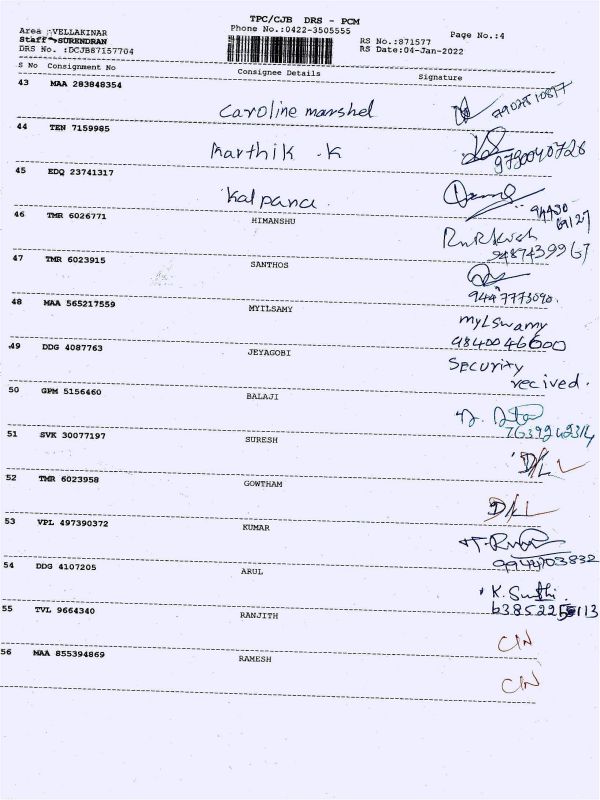 TPC/CJB DRS - PCM
Area :VELLAKINAR
Phone No.:0422-3505555
Page No.:4
Staff :SURENDRAN
RS No.:871577
DRS No. :DCJB87157704
RS Date:04-Jan-2022
S No Consignment No Consignee Details Signature
43 MAA 283848354
Caroline marshel
44 TEN 7159985
Karthik .K 9790040728
45 EDQ 23741317
Kalpana
94430
69127
46 TMR 6026771 HIMANSHU
9487439967
47 TMR 6023915 SANTHOS
9447773090.
48 MAA 565217559 MYILSAMY
myLSwamy
9840046000
49 DDG 4087763 JEYAGOBI
Security
recived.
50 GPM 5156460 BALAJI
7639262314
51 SVK 30077197 SURESH
D/L
52 TMR 6023958 GOWTHAM
D/L
53 VPL 497390372 KUMAR
9944703832
54 DDG 4107205 ARUL
K. Sunthi.
55 TVL 9664340 RANJITH
CIN
56 MAA 855394869 RAMESH
CIN